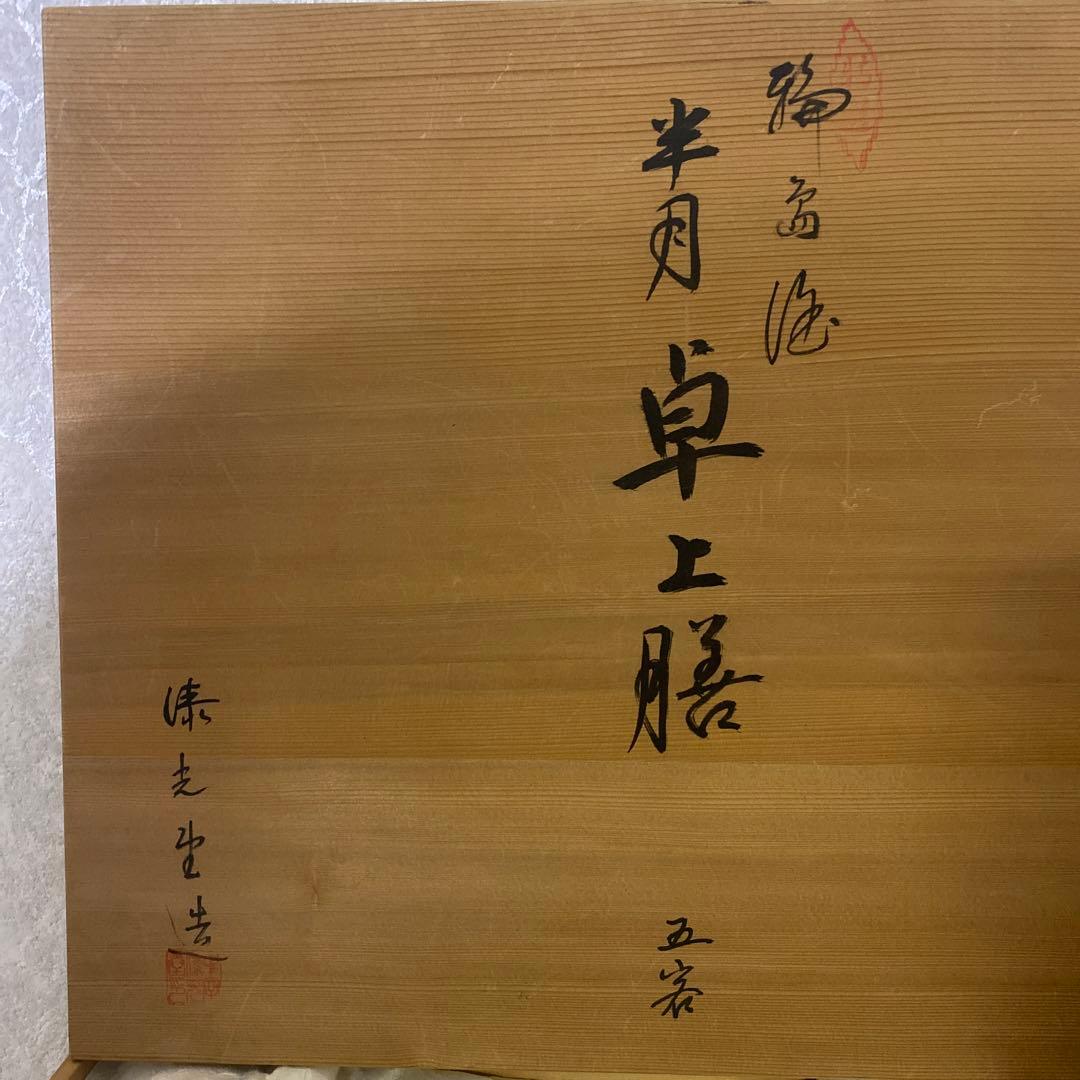 輪島塗
半月卓上膳 五客
漆光堂造